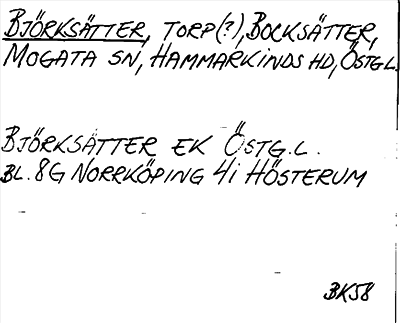 BJÖRKSÄTTER, TORP(?), BOCKSÄTTER,
MOGATA SN, HAMMARKINDS HD, ÖSTG L.
BJÖRKSÄTTER EK ÖSTG.L.
BL. 8G NORRKÖPING 4i HÖSTERUM
BK58